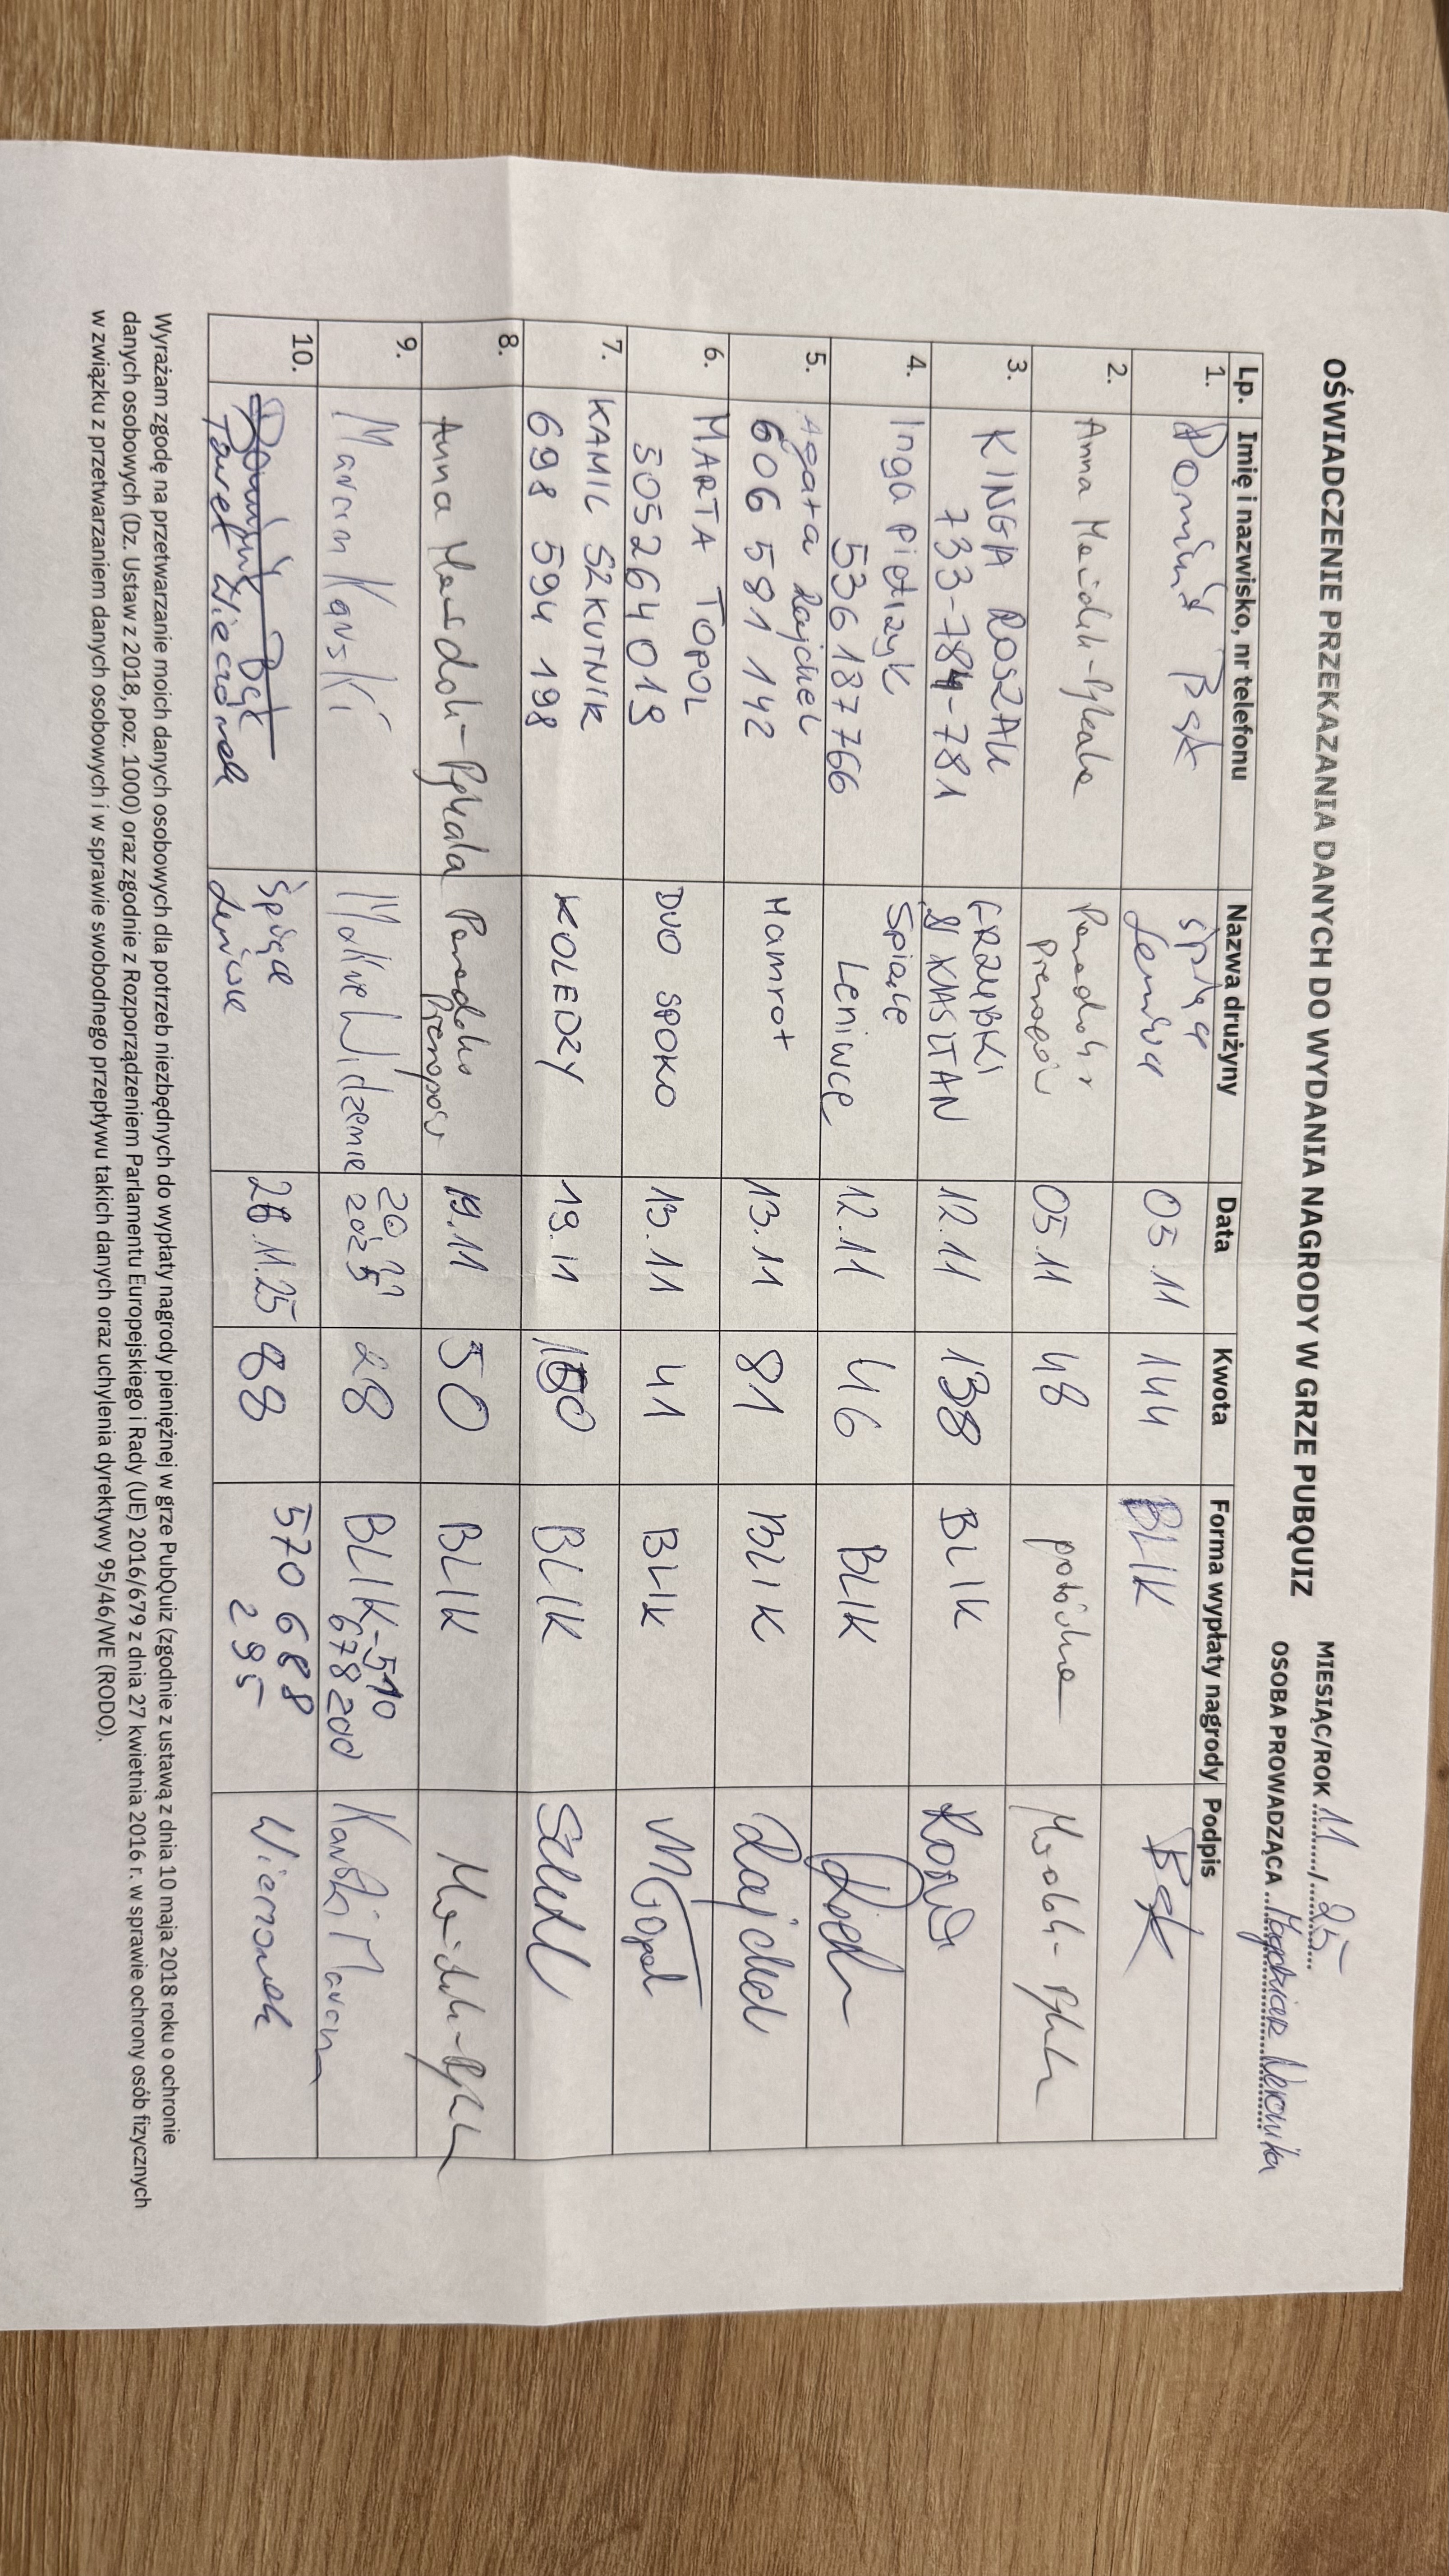 OŚWIADCZENIE PRZEKAZANIA DANYCH DO WYDANIA NAGRODY W GRZE PUBQUIZ
MIESIĄC/ROK 11 / 25
OSOBA PROWADZĄCA Weronika
Lp. Imię i nazwisko, nr telefonu Nazwa drużyny Data Kwota Forma wypłaty nagrody Podpis
1. Dominik Bąk Śpiące Leniwce 05.11 144 BLIK Bąk
2. Anna 05.11 48
3. KINGA ROSZAK GRZYBKI
733-784-781 & KASZTAN 12.11 138 BLIK
4. Inga Pietrzyk Śpiące
536 187 766 Leniwce 12.11 46 BLIK
5. Agata Rajchel
606 581 142 Hamrot 13.11 81 BLIK Rajchel
6. MARTA TOPOL
505264019 DUO SPOKO 13.11 41 BLIK MTopol
7. KAMIL SZKUTNIK
698 594 198 KOLEDZY 19.11 BLIK
8. Anna 19.11 50 BLIK
9. Marcin Kański 28 BLIK-510
678 200 Kański Marcin
10. Dominik Bąk Śpiące 570 688
Paweł Wieczorek Leniwce 26.11.25 88 295 Wieczorek
Wyrażam zgodę na przetwarzanie moich danych osobowych dla potrzeb niezbędnych do wypłaty nagrody pieniężnej w grze PubQuiz (zgodnie z ustawą z dnia 10 maja 2018 roku o ochronie
danych osobowych (Dz. Ustaw z 2018, poz. 1000) oraz zgodnie z Rozporządzeniem Parlamentu Europejskiego i Rady (UE) 2016/679 z dnia 27 kwietnia 2016 r. w sprawie ochrony osób fizycznych
w związku z przetwarzaniem danych osobowych i w sprawie swobodnego przepływu takich danych oraz uchylenia dyrektywy 95/46/WE (RODO).